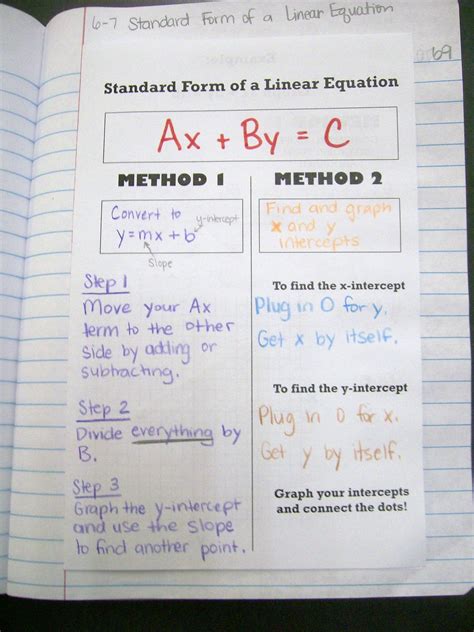 6-7 Standard Form of a Linear Equation
69
Standard Form of a Linear Equation
Ax + By = C
METHOD 1
Convert to
y=mx+b
y-intercept
Slope
Step 1
Move your Ax
term to the other
side by adding or
subtracting.
Step 2
Divide everything by
B.
Step 3
Graph the y-intercept
and use the slope
to find another point.
METHOD 2
Find and graph
x and y
intercepts
To find the x-intercept
Plug in 0 for y.
Get x by itself.
To find the y-intercept
Plug in 0 for x.
Get y by itself.
Graph your intercepts
and connect the dots!